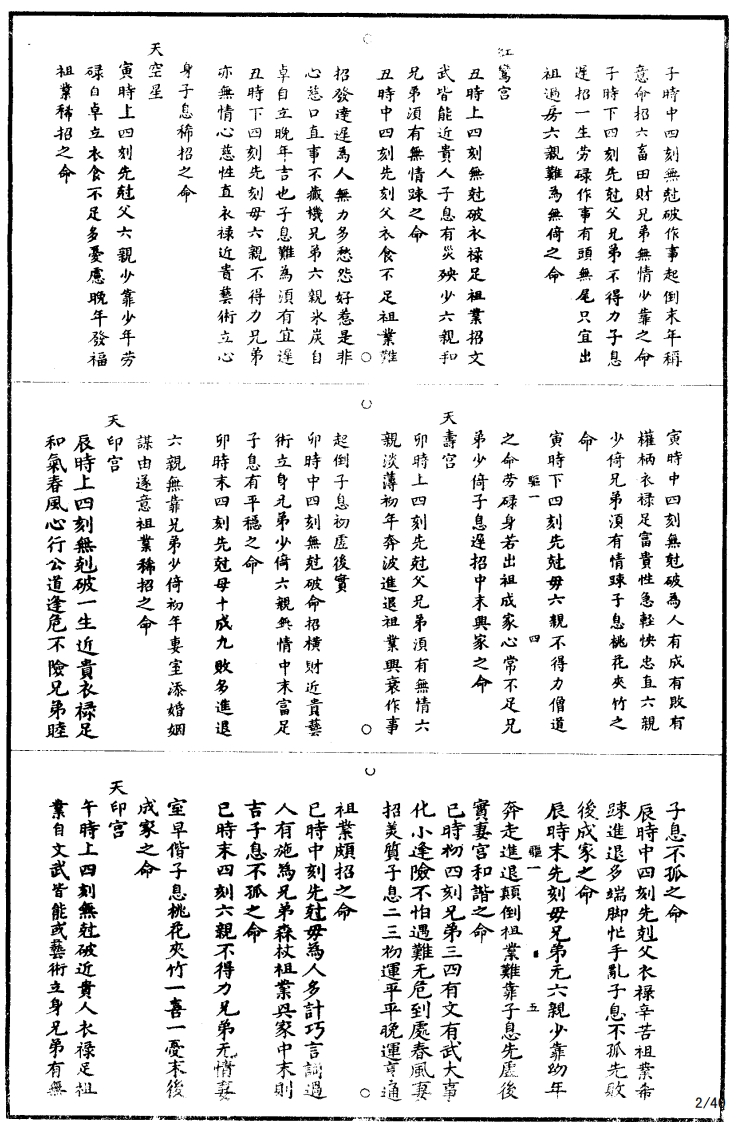 子時中四刻無尅破作事起倒末年稱
意命招六畜田財兄弟無情少靠之命
子時下四刻先尅父兄弟不得力子息
遲招一生勞碌作事有頭無尾只宜出
祖過房六親難為無倚之命
紅鸞宮
丑時上四刻無尅破衣祿足祖業招文
武皆能近貴人子息有災殃少六親和
兄弟須有無情踈之命
丑時中四刻先刻父衣食不足祖業難
招發達遲為人無力多愁怨好惹是非
心慈口直事不藏機兄弟六親氷炭自
卓自立晚年吉也子息難為須有宜遲
丑時下四刻先刻母六親不得力兄弟
亦無情心慈性直衣祿近貴藝術立心
身子息稀招之命
天空星
寅時上四刻先尅父六親少靠少年勞
碌自卓立衣食不足多憂慮晚年發福
祖業稀招之命
寅時中四刻無尅破為人有成有敗有
權柄衣祿足富貴性急輕快忠直六親
少倚兄弟須有情踈子息桃花夾竹之
命
寅時下四刻先尅母六親不得力僧道
驅一 四
之命勞碌身若出祖成家心常不足兄
弟少倚子息遲招中末興家之命
天壽宮
卯時上四刻先尅父兄弟須有無情六
親淡薄初年奔波進退祖業興衰作事
起倒子息初虛後實
卯時中四刻無尅破命招橫財近貴藝
術立身兄弟少倚六親無情中末富足
子息有平穩之命
卯時末四刻先尅母十成九敗多進退
六親無靠兄弟少倚初年妻室添婚姻
謀由遂意祖業稀招之命
天印宮
辰時上四刻無尅破一生近貴衣祿足
和氣春風心行公道逢危不險兄弟睦
子息不孤之命
辰時中四刻先尅父衣祿辛苦祖業希
踈進退多端脚忙手亂子息不孤先敗
後成家之命
辰時末先刻母兄弟无六親少靠幼年
驅一 五
奔走進退顛倒祖業難靠子息先虛後
實妻宮和諧之命
巳時初四刻兄弟三四有文有武大事
化小逢險不怕遇難无危到處春風妻
招美質子息二三初運平平晚運亨通
祖業頗招之命
巳時中刻先尅母為人多計巧言調過
人有施為兄弟森杖祖業吳家中末則
吉子息不孤之命
巳時末四刻六親不得力兄弟无情妻
室早偕子息桃花夾竹一喜一憂末後
成家之命
天印宮
午時上四刻無尅破近貴人衣祿足祖
業自文武皆能或藝術立身兄弟有無
2/4